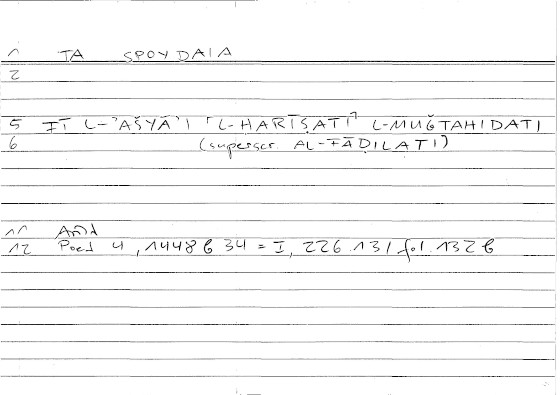 1 TA SPOYDAIA
2
5 FĪ L-ʾAŠYĀʾI ⸢L-ḤARĪṢATI⸣ L-MUǦTAHIDATI
6 (superscr AL-FĀḌILATI)
11 Arist
12 Poet 4, 1448 b 34 = I, 226.13 / fol. 132 b